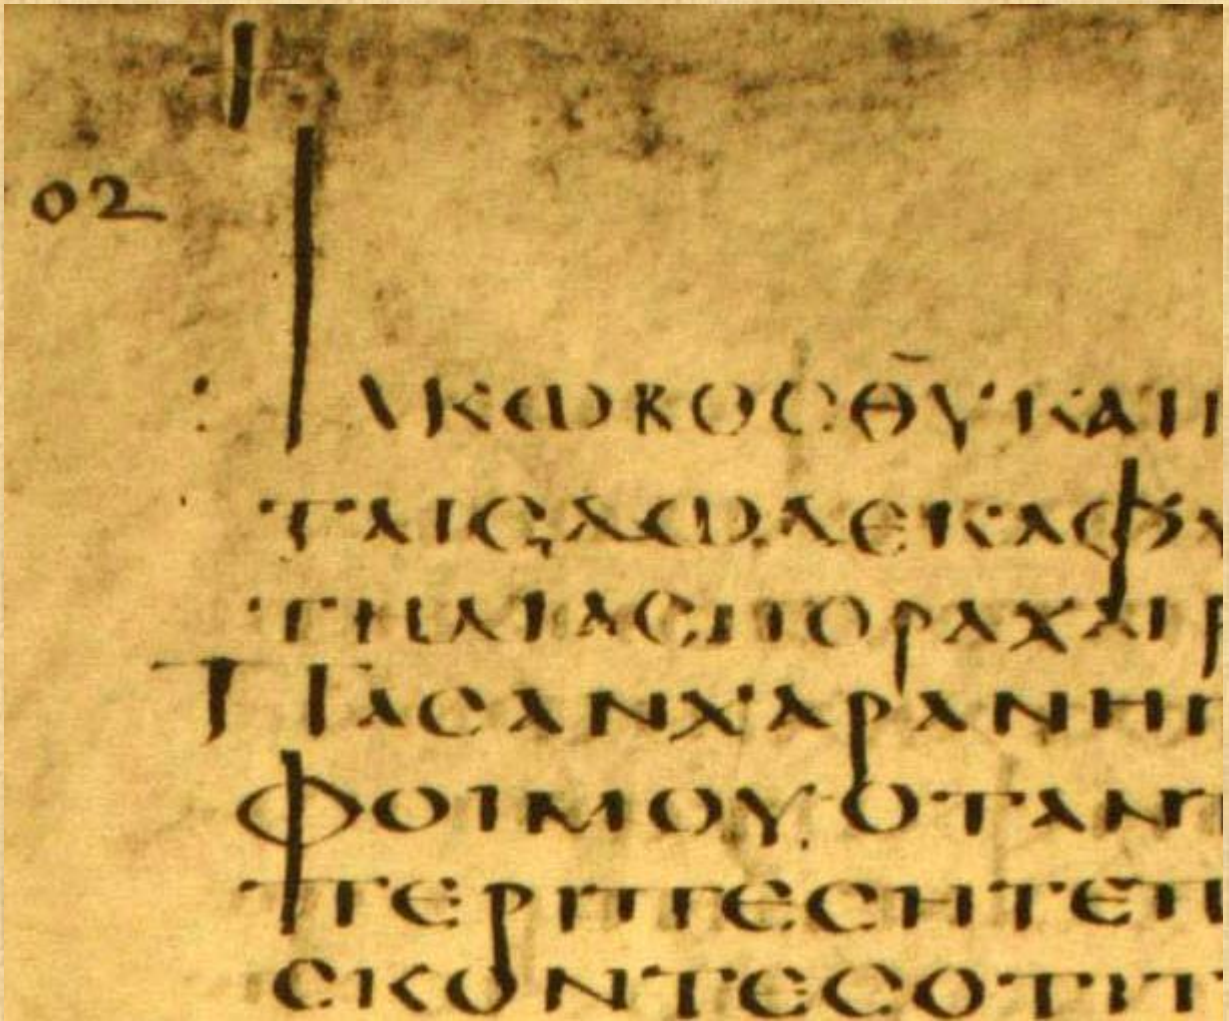 02
ΙΑΚΩΒΟϹΘ̅Υ̅ΚΑΙ
ΤΑΙϹΔΩΔΕΚΑΦΥ
ΤΗΔΙΑϹΠΟΡΑΧΑΙΡ
ΠΑϹΑΝΧΑΡΑΝΗΓ
ΦΟΙΜΟΥΟΤΑΝΠ
ΠΕΡΙΠΕϹΗΤΕΠ
ϹΚΟΝΤΕϹΟΤΙΤ